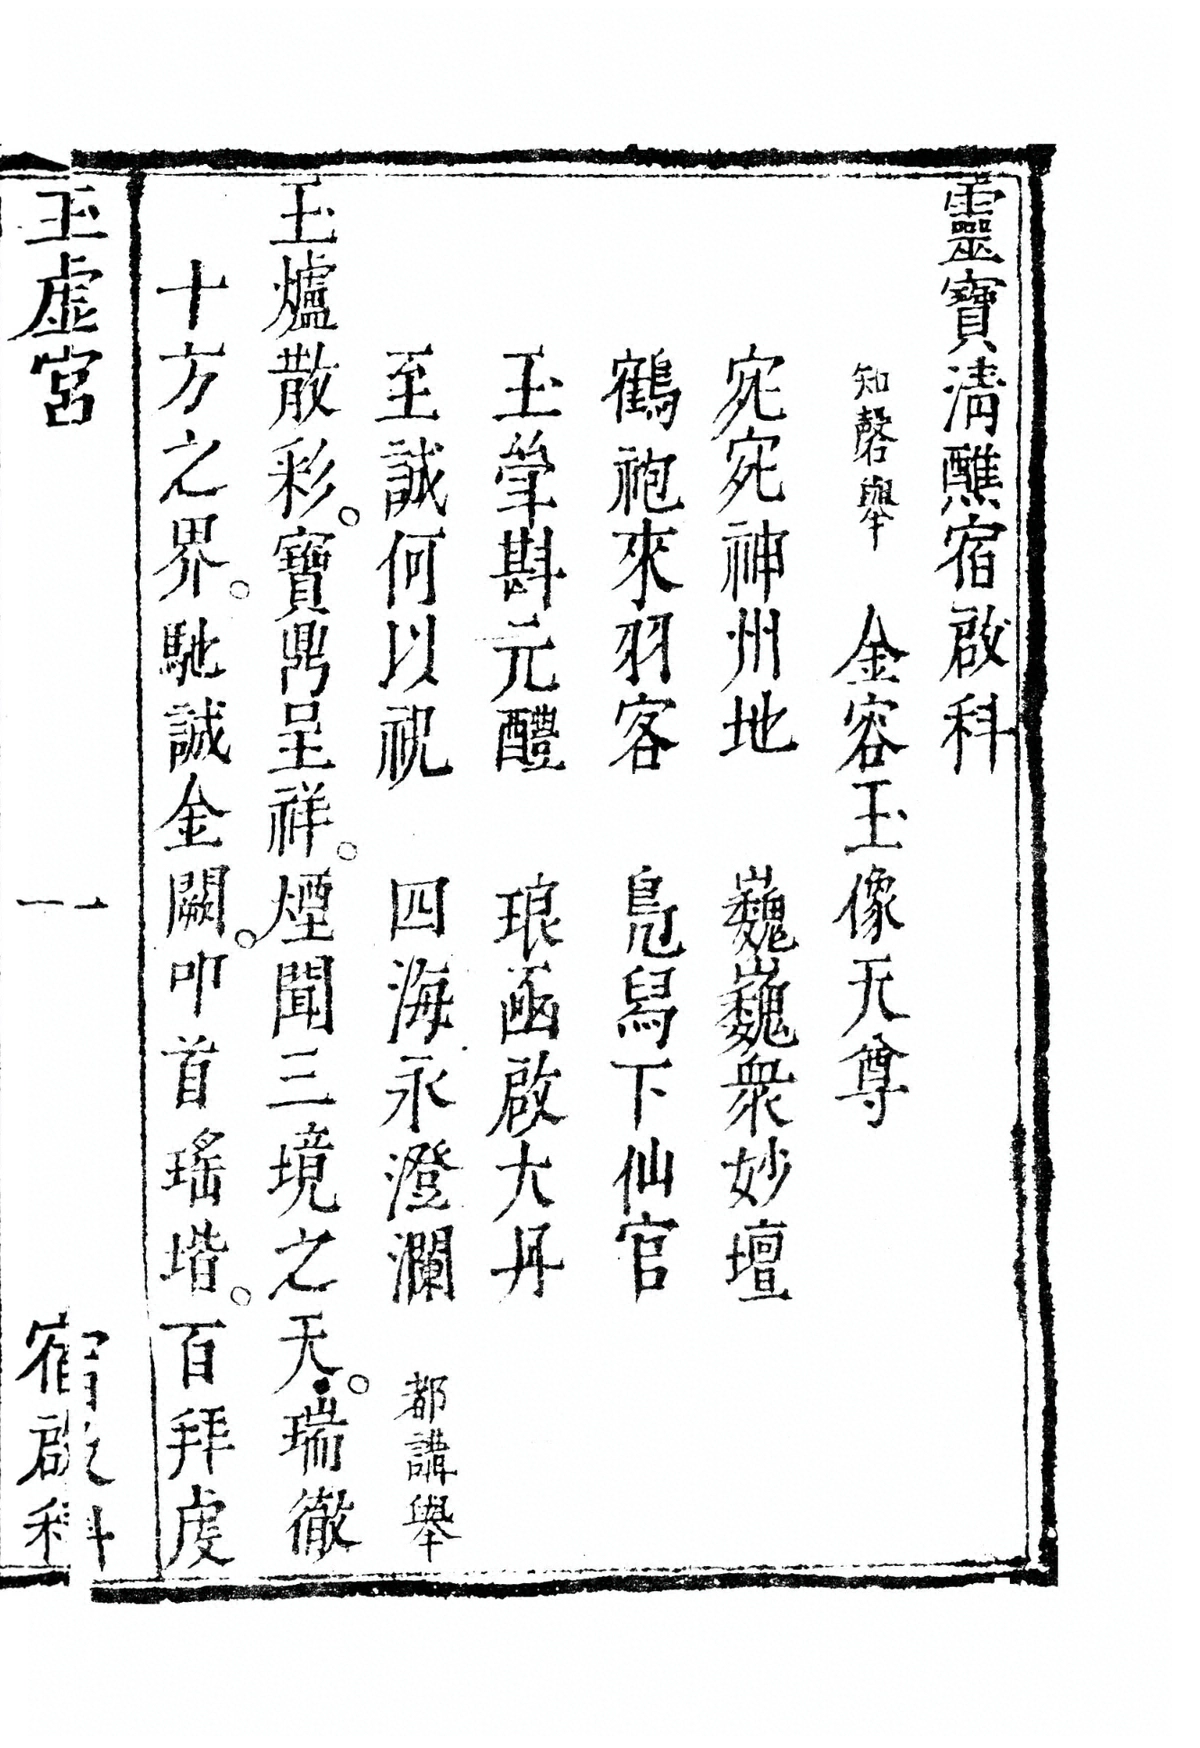 靈寶清醮宿啟科
知磬舉 金容玉像天尊
宛宛神州地 巍巍衆妙壇
鶴袍來羽客 鳧舄下仙官
玉斝斟元醴 琅函啟大丹
至誠何以祝 四海永澄瀾 都講舉
玉爐散彩。寶鼎呈祥。煙聞三境之天。瑞徹
十方之界。馳誠金闕。叩首瑤堦。百拜虔
玉虛宮 一 宿啟科